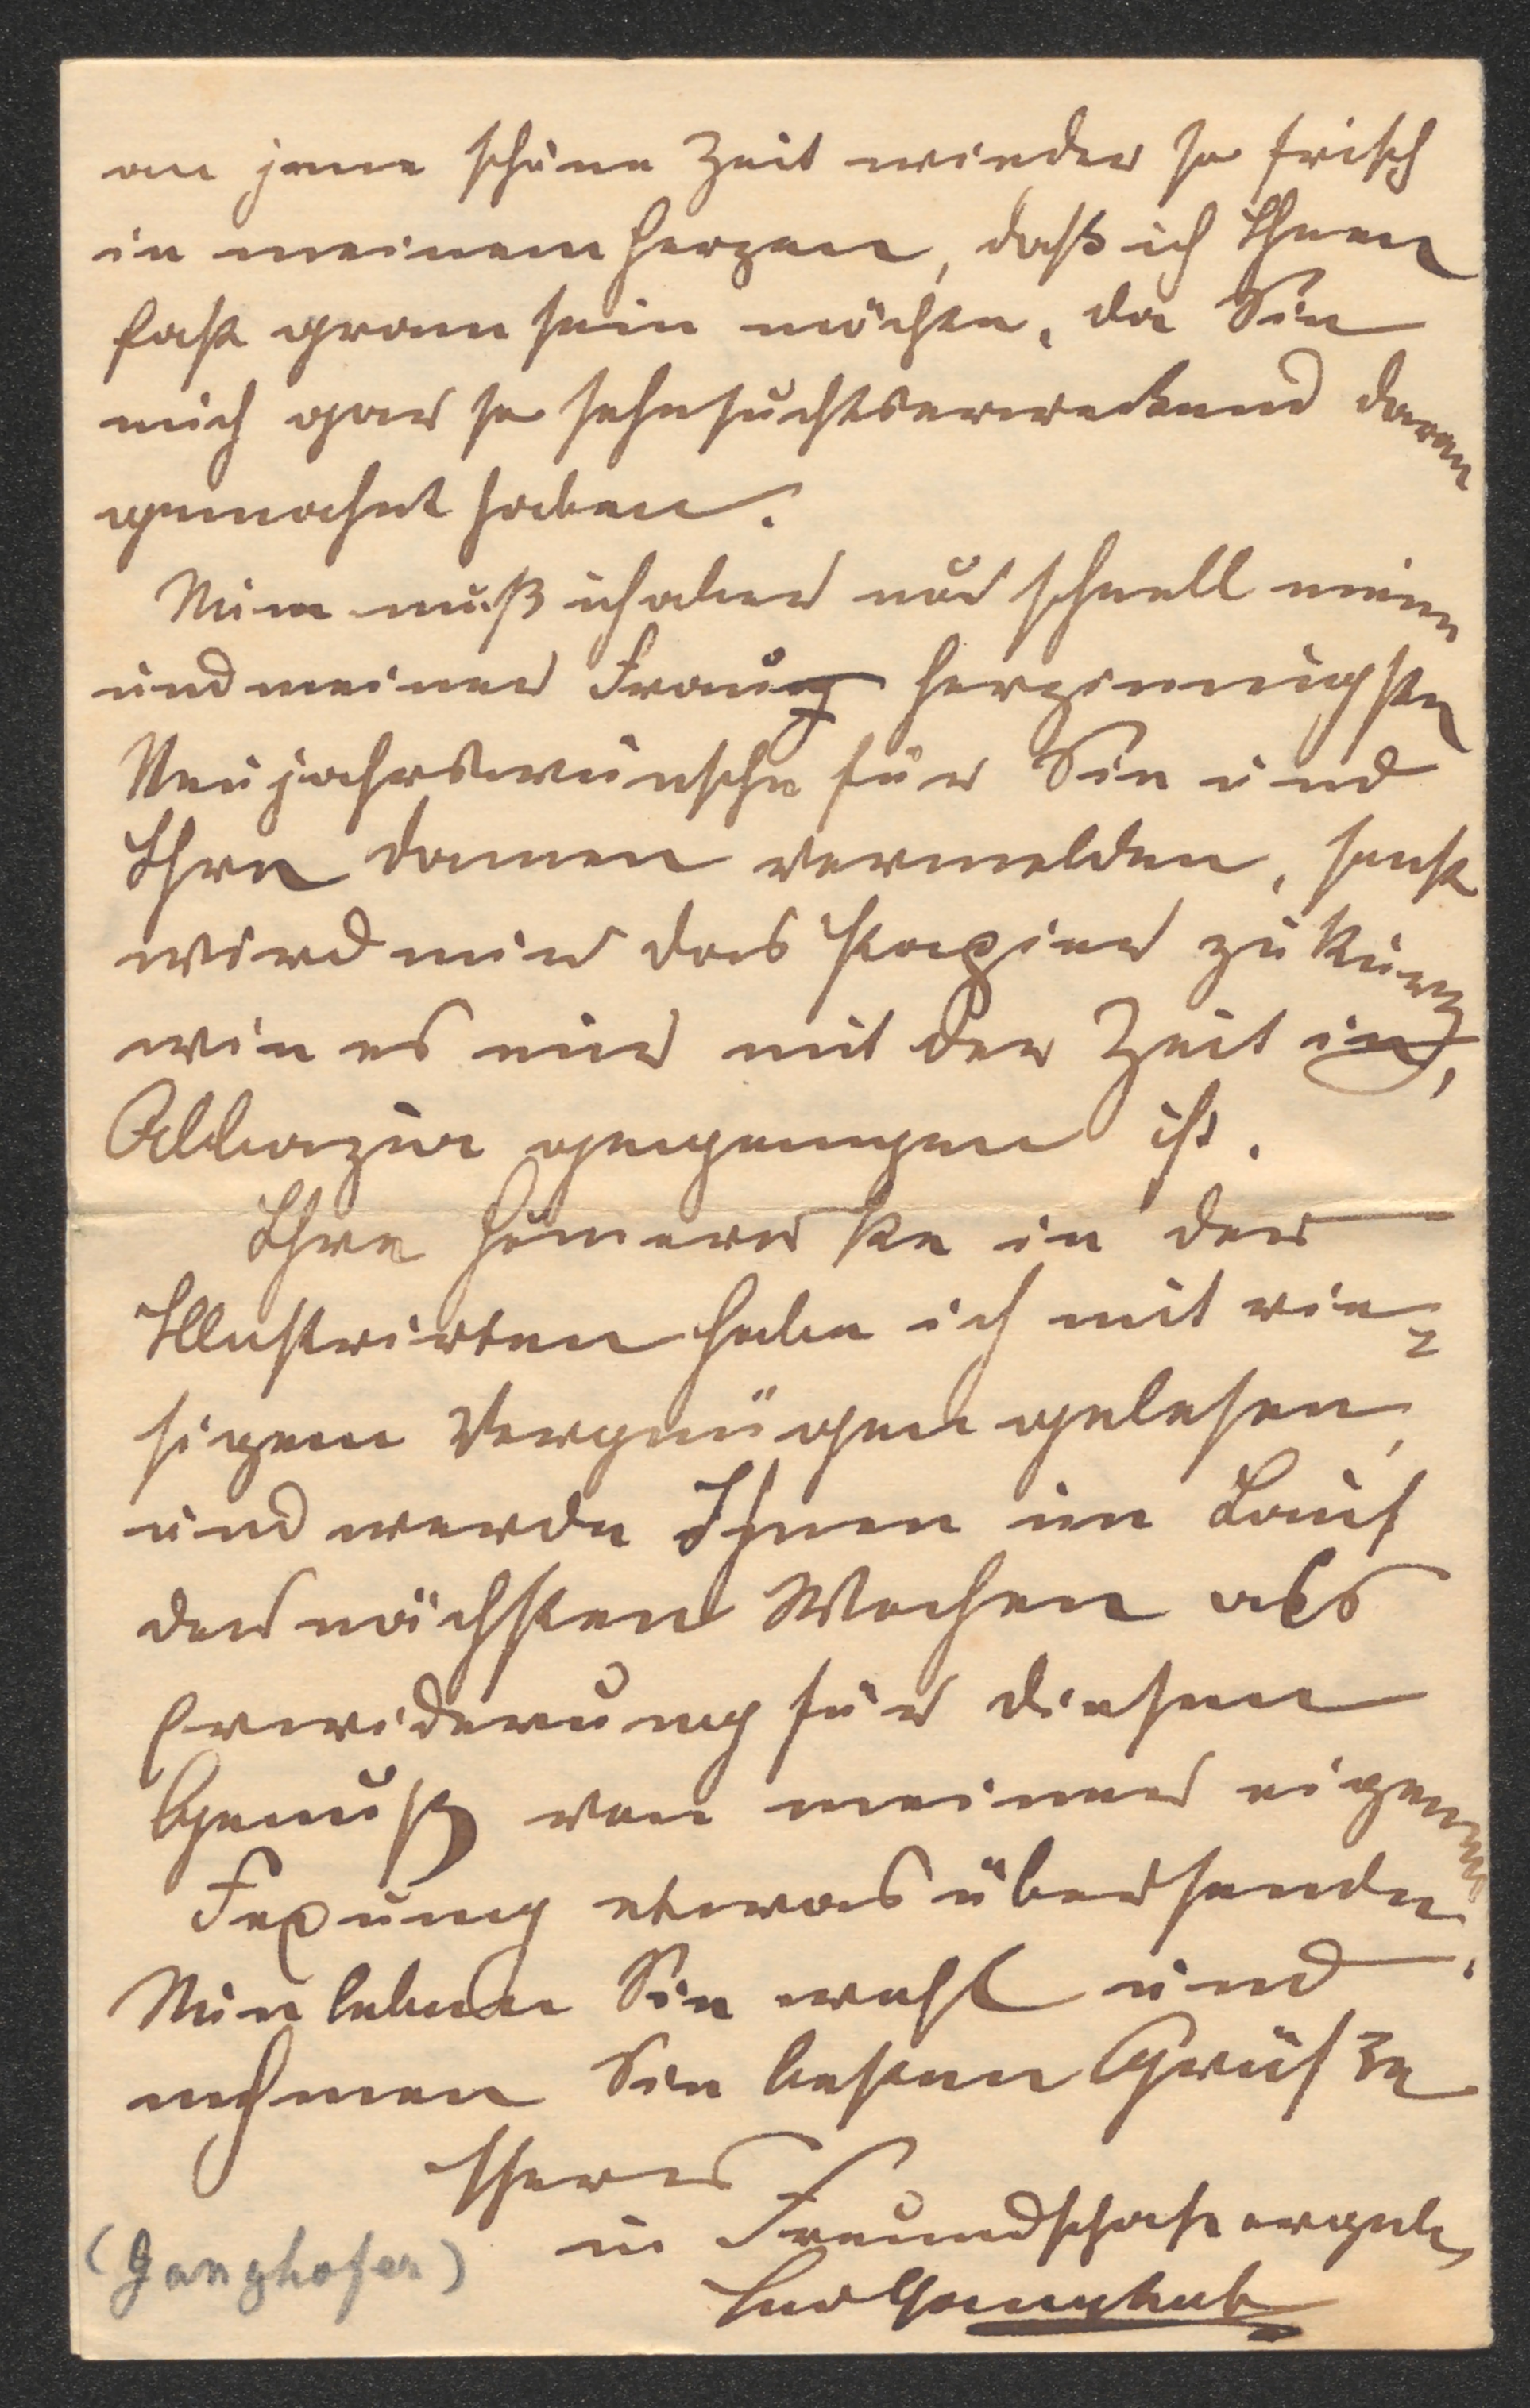 an jene schöne Zeit wieder so frisch
in meinem Herzen, daß ich Ihnen
fast gram sein möchte, da Sie
mich gar so sehnsuchtserweckend daran
gemahnt haben.
Nun muß ich aber nur schnell meine
und meiner Frau herzinnigsten
Neujahrswünsche für Sie und
Ihre Damen vermelden, sonst
wird mir das Papier zu kurz
wie es mir mit der Zeit in
Abbazia gegangen ist.
Ihre Humoreske in der
Illustrirten habe ich mit rie-
sigem Vergnügen gelesen,
und werde Ihnen im Lauf
der nächsten Wochen als
Erwiderung für diesen
Genuß von meiner eigenen
Fexung etwas übersenden.
Nun leben Sie wohl und
nehmen Sie besten Grüße
Ihres
in Freundschaft ergeb.
LudGanghofer
(Ganghofer)